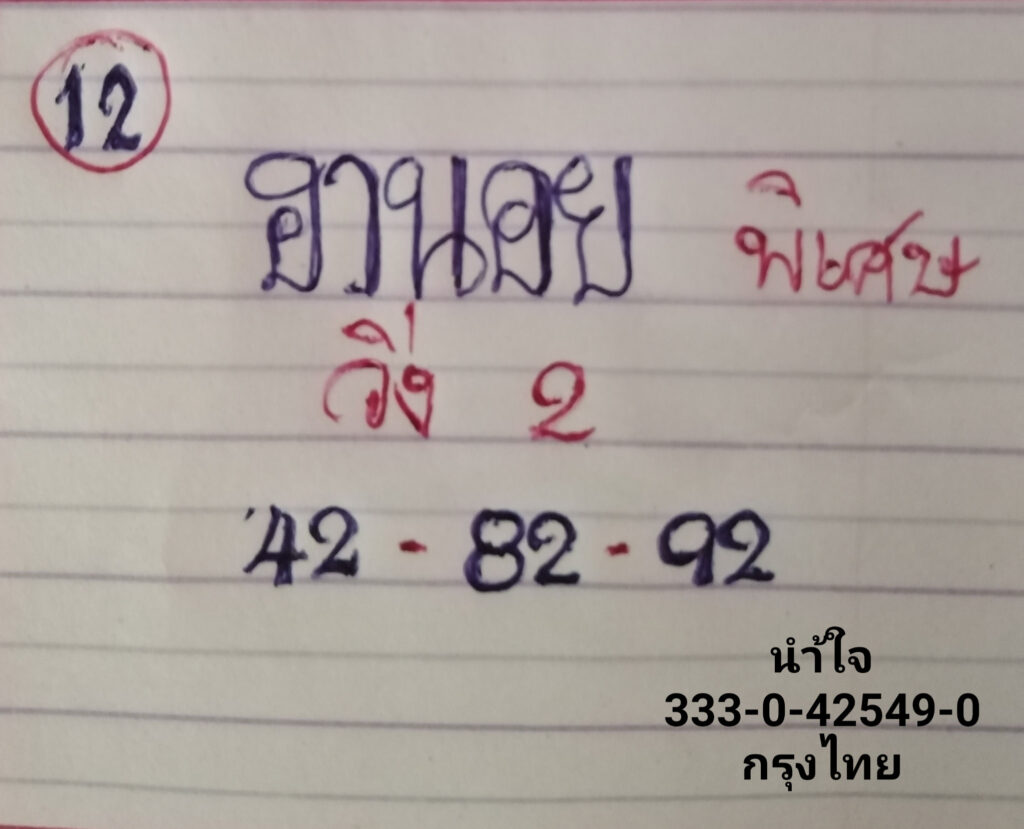 12
ฮานอย พิเศษ
วิ่ง 2
42 - 82 - 92
นำ้ใจ
333-0-42549-0
กรุงไทย